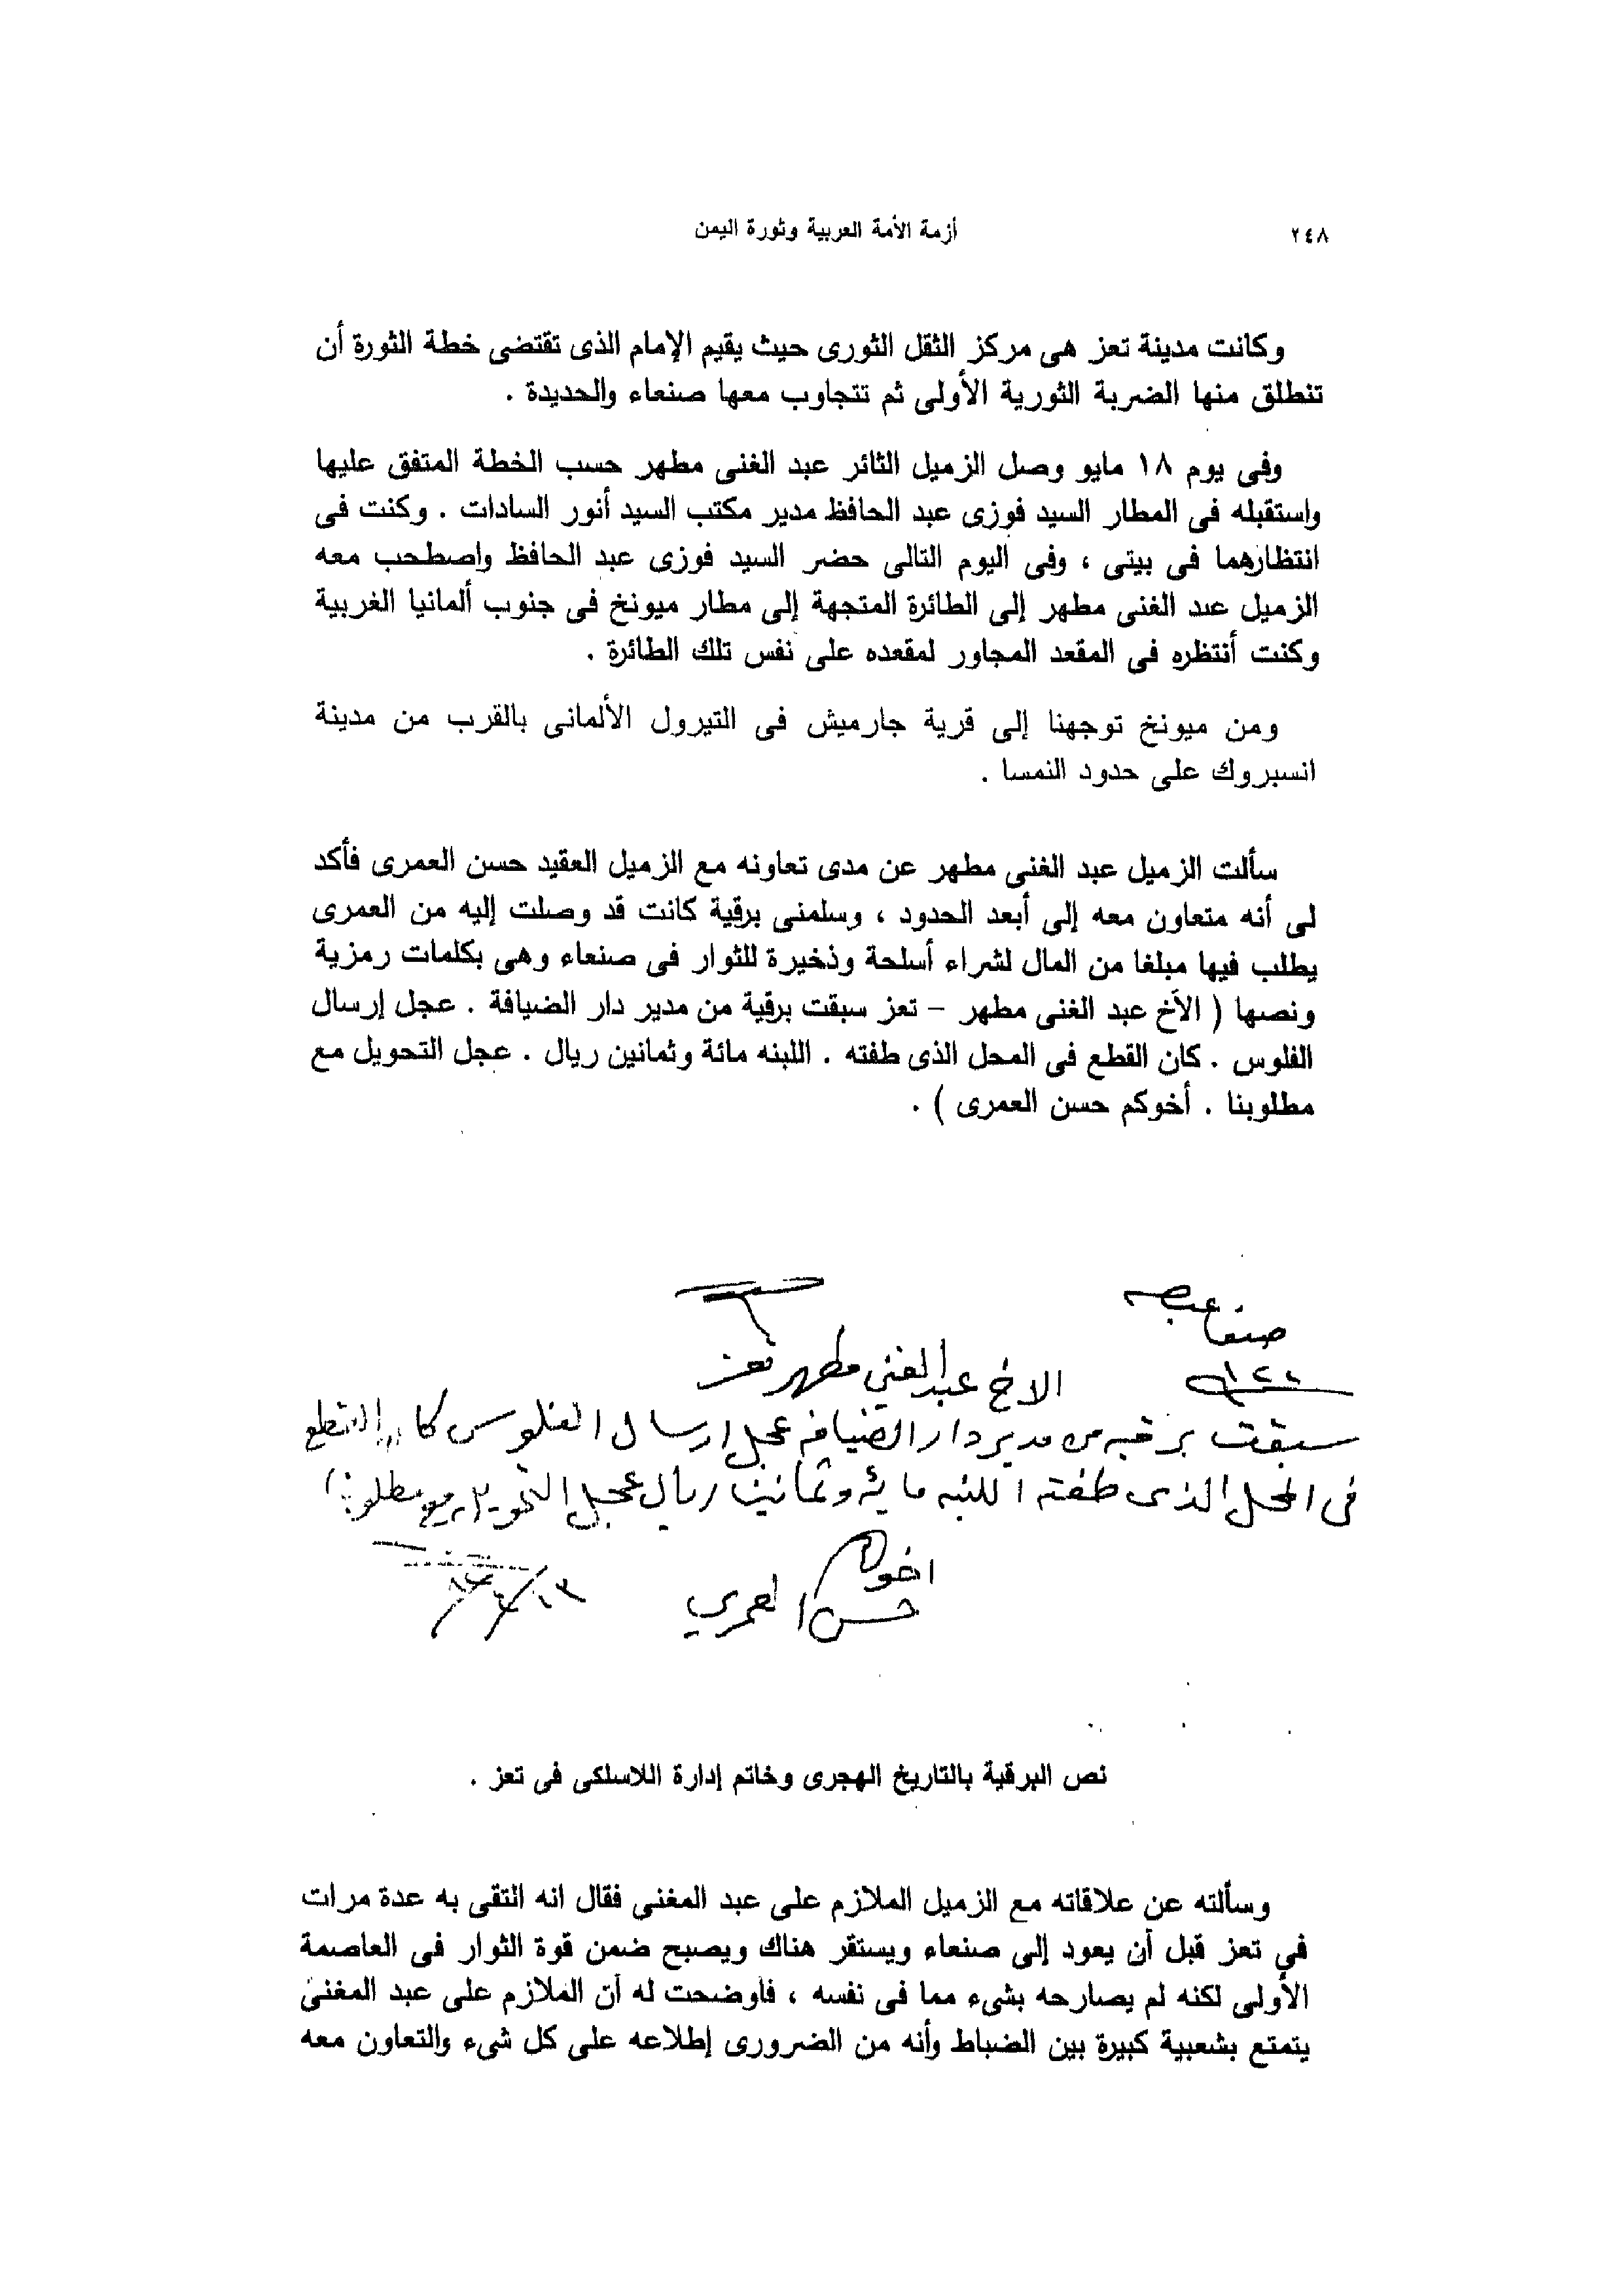 ٢٤٨
أزمة الأمة العربية وثورة اليمن
وكانت مدينة تعز هى مركز الثقل الثورى حيث يقيم الإمام الذى تقتضى خطة الثورة أن
تنطلق منها الضربة الثورية الأولى ثم تتجاوب معها صنعاء والحديدة .
وفى يوم ١٨ مايو وصل الزميل الثائر عبد الغنى مطهر حسب الخطة المتفق عليها
واستقبله فى المطار السيد فوزى عبد الحافظ مدير مكتب السيد أنور السادات . وكنت فى
انتظارهما فى بيتى ، وفى اليوم التالى حضر السيد فوزى عبد الحافظ واصطحب معه
الزميل عبد الغنى مطهر إلى الطائرة المتجهة إلى مطار ميونخ فى جنوب ألمانيا الغربية
وكنت أنتظره فى المقعد المجاور لمقعده على نفس تلك الطائرة .
ومن ميونخ توجهنا إلى قرية جارميش فى التيرول الألمانى بالقرب من مدينة
انسبروك على حدود النمسا .
سألت الزميل عبد الغنى مطهر عن مدى تعاونه مع الزميل العقيد حسن العمرى فأكد
لى أنه متعاون معه إلى أبعد الحدود ، وسلمنى برقية كانت قد وصلت إليه من العمرى
يطلب فيها مبلغا من المال لشراء أسلحة وذخيرة للثوار فى صنعاء وهى بكلمات رمزية
ونصها ( الأخ عبد الغنى مطهر – تعز سبقت برقية من مدير دار الضيافة . عجل إرسال
الفلوس . كان القطع فى المحل الذى طفته . اللبنه مائة وثمانين ريال . عجل التحويل مع
مطلوبنا . أخوكم حسن العمرى ) .
صنعا
الاخ عبدالغني مطهر تعز
سبقت برقيه من مدير دار الضيافه عجل ارسال الفلوس كان القطع
فى المحل الذى طفته اللبنه مائه وثمانين ريال عجل التحويل مع مطلوبنا
اخوكم
حسن العمري
نص البرقية بالتاريخ الهجرى وخاتم إدارة اللاسلكى فى تعز .
وسألته عن علاقاته مع الزميل الملازم على عبد المغنى فقال انه التقى به عدة مرات
في تعز قبل أن يعود إلى صنعاء ويستقر هناك ويصبح ضمن قوة الثوار فى العاصمة
الأولى لكنه لم يصارحه بشىء مما فى نفسه ، فأوضحت له أن الملازم على عبد المغنى
يتمتع بشعبية كبيرة بين الضباط وأنه من الضرورى إطلاعه على كل شىء والتعاون معه